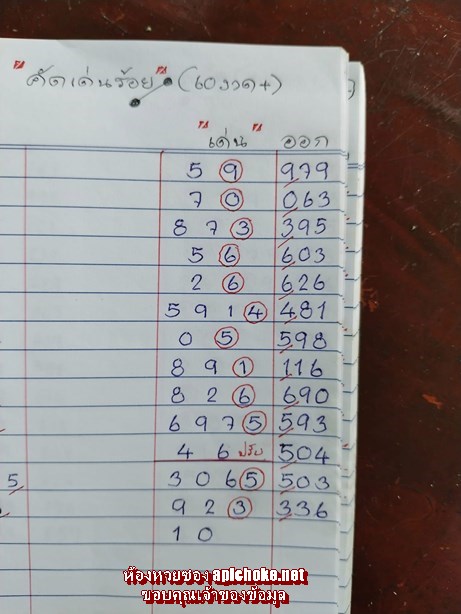 "คัดเด่นร้อย" (60งวด+)
"เด่น" ออก
5 9 979
7 0 063
8 7 3 395
5 6 603
2 6 626
5 9 1 4 481
0 5 598
8 9 1 116
8 2 6 690
6 9 7 5 593
4 6 ปรับ 504
5 3 0 6 5 503
9 2 3 336
1 0
ห้องหวยซอง apichoke.net
ขอบคุณเจ้าของข้อมูล